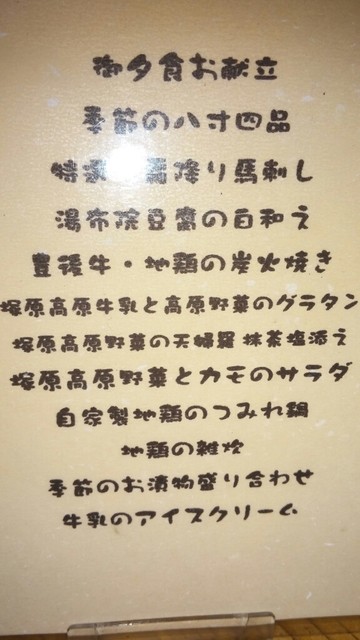 御夕食お献立
季節の八寸四品
特 霜降り馬刺し
湯布院豆腐の白和え
豊後牛・地鶏の炭火焼き
塚原高原牛乳と高原野菜のグラタン
塚原高原野菜の天婦羅 抹茶塩添え
塚原高原野菜とカモのサラダ
自家製地鶏のつみれ鍋
地鶏の雑炊
季節のお漬物盛り合わせ
牛乳のアイスクリーム